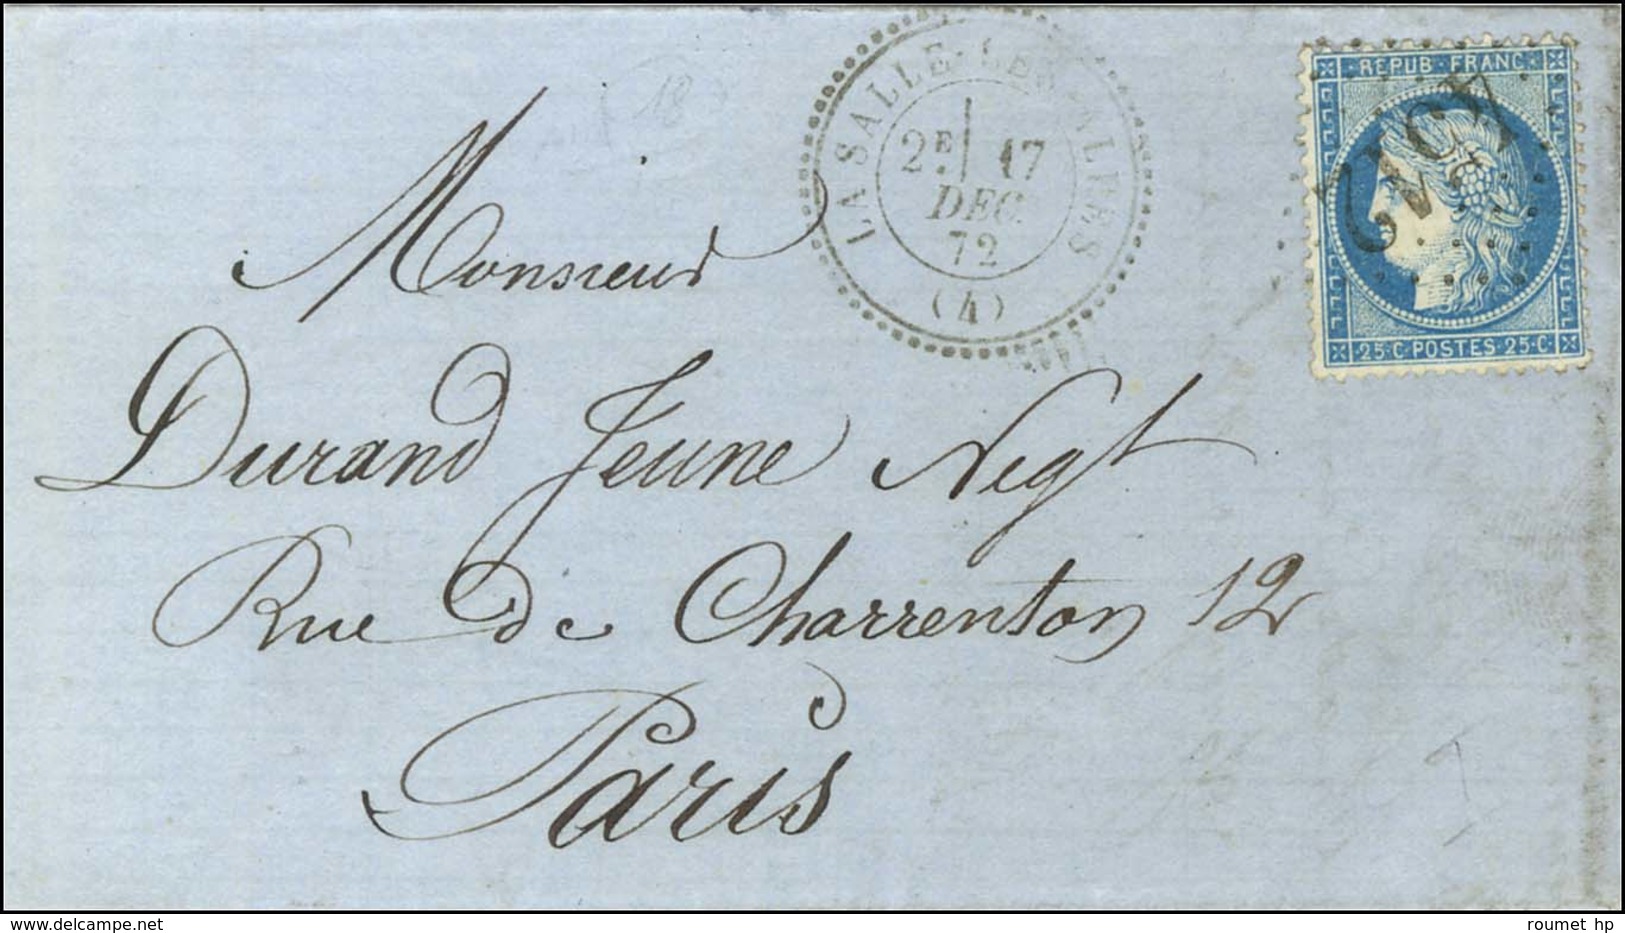 LA SALLE-LES-ALPES
2E 17
DEC.
72
(4)
REPUB·FRANC
25·C·POSTES·25·C
Monsieur
Durand Jeune Negt
Rue de Charrenton 12
Paris
roumet hp